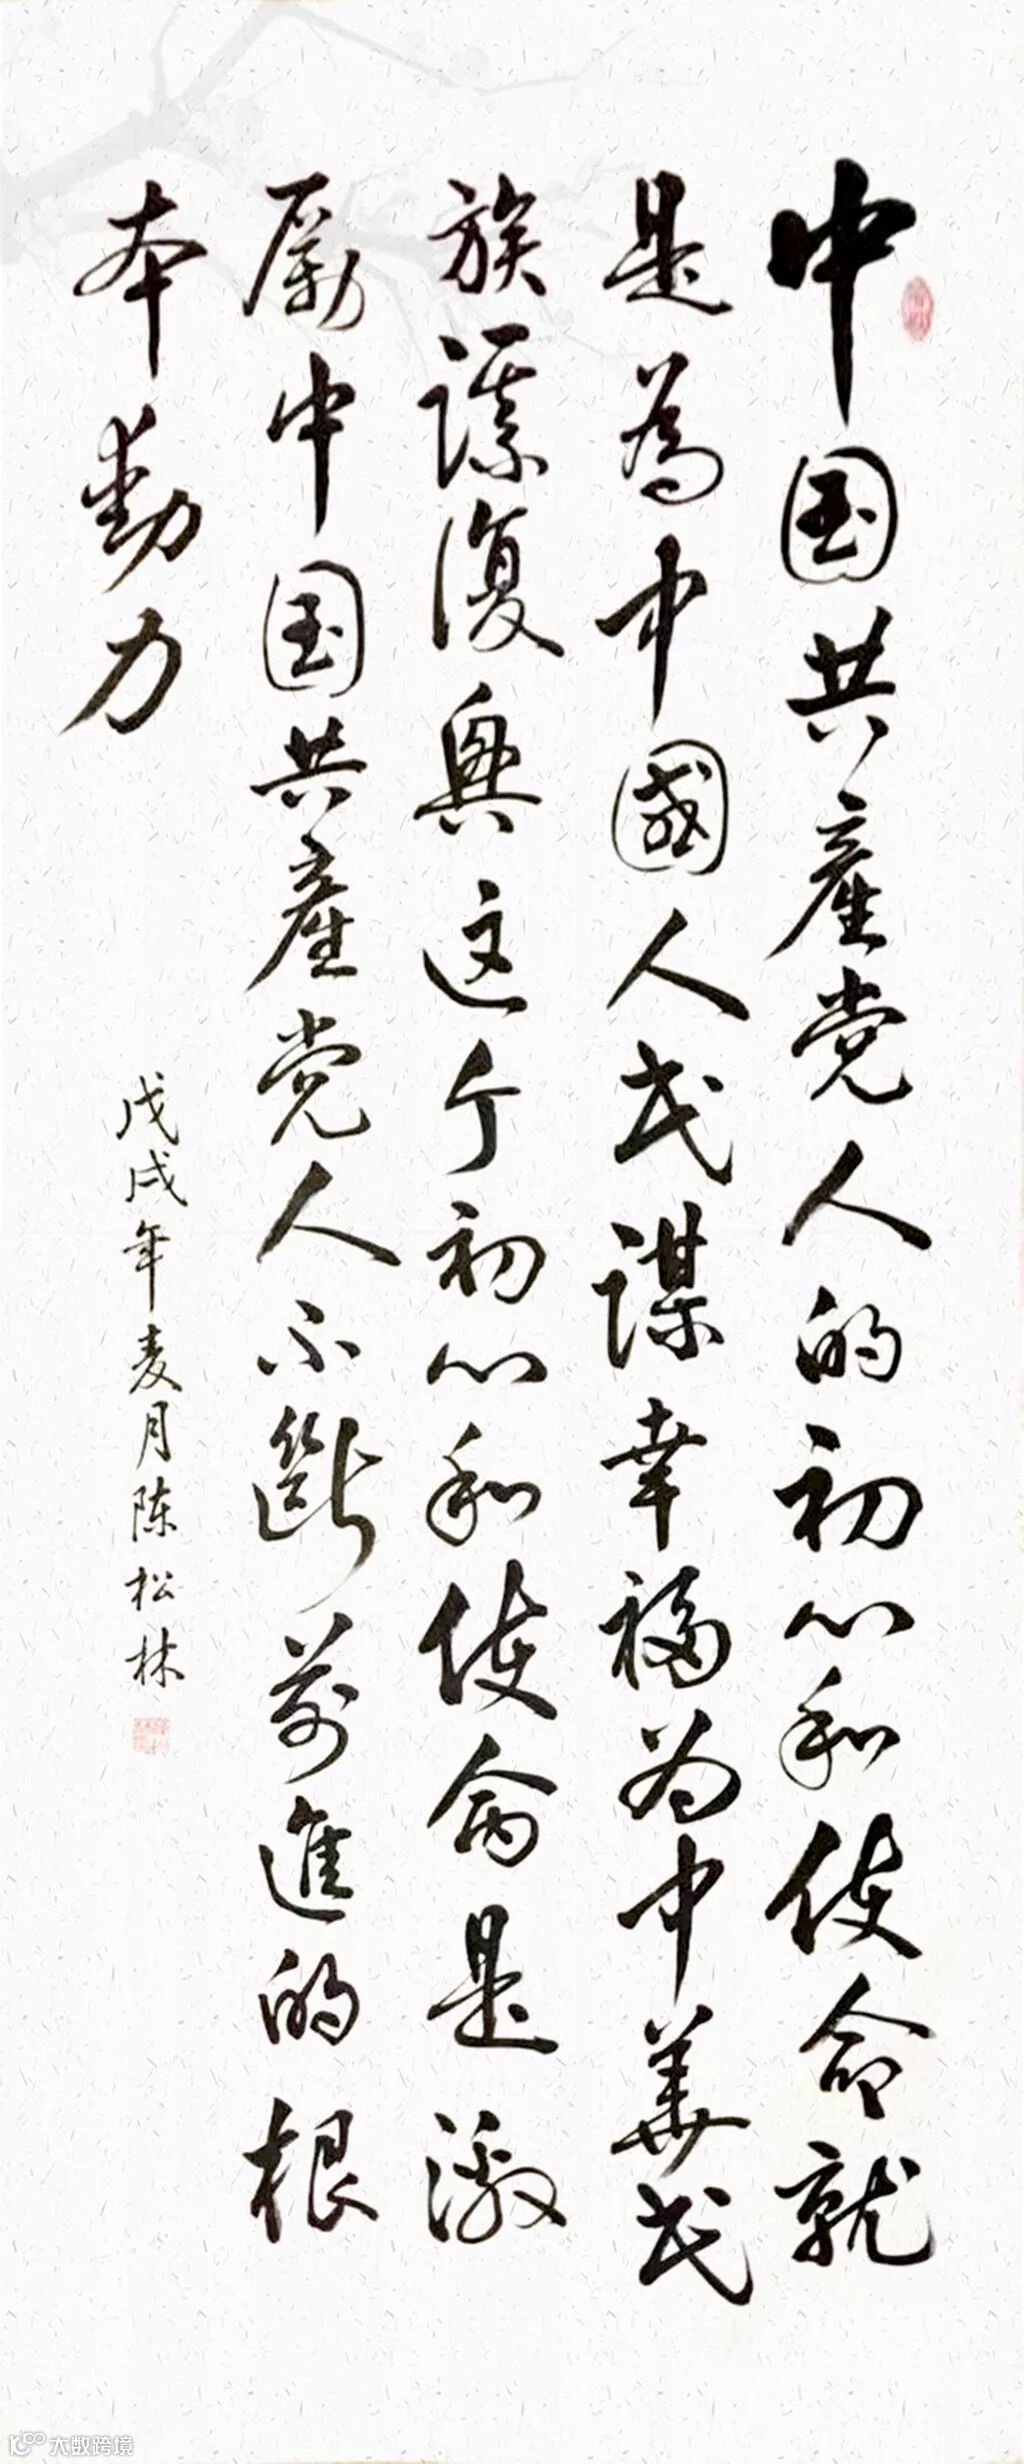 中国共產党人的初心和使命就
是為中國人民谋幸福为中華民
族谋復興这个初心和使命是激
励中国共產党人不斷前進的根
本動力
戊戌年麦月陈松林
大数跨境